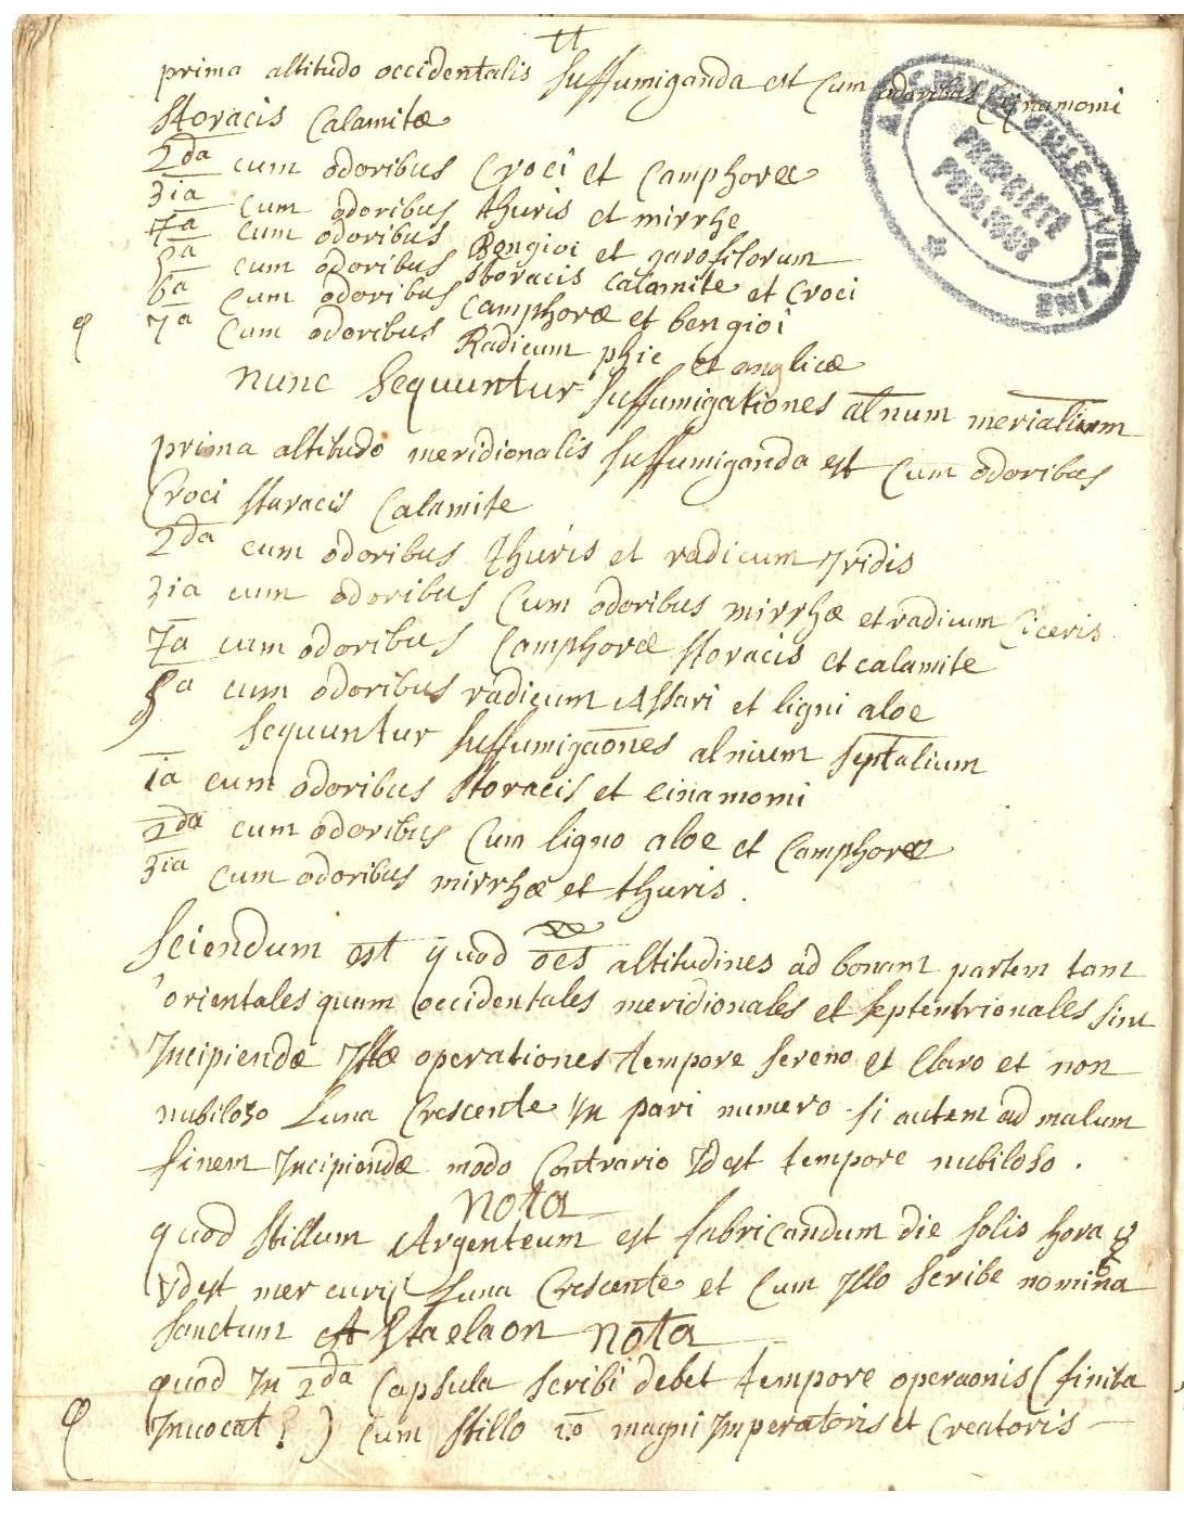 tt
prima altitudo occidentalis suffumiganda est Cum odoribus Cinamomi
storacis Calamitæ
2da cum odoribus Croci et Camphoræ
3ia cum odoribus thuris et mirrhe
4a cum odoribus Bengioi et garofilorum
5a cum odoribus storacis calamite et Croci
6a Cum odoribus Camphoræ et bengioi
7a Cum odoribus Radicum phie et anglicæ
nunc Sequuntur suffumigationes altnum merialium
prima altitudo meridionalis suffumiganda est Cum odoribus
Croci staracis Calamite
2da cum odoribus thuris et radicum Yridis
3ia cum odoribus Cum odoribus mirrhæ et radicum Ciceris
4a cum odoribus Camphoræ storacis et calamite
5a cum odoribus radicum Assari et ligni aloe
Sequuntur suffumigaones alnium septalium
1a cum odoribus storacis et cinamomi
2da cum odoribus Cum ligno aloe et Camphoræ
3ia Cum odoribus mirrhæ et thuris.
Sciendum est quod oes altitudines ad bonam partem tam
orientales quam occidentales meridionales et septentrionales sint
Incipiendæ Istæ operationes tempore sereno et Claro et non
nubiloso Luna Crescente In pari numero si autem ad malum
finem Incipiendæ modo Contrario Idest tempore nubiloso.
nota
quod stillum Argenteum est fabricandum die solis hora ☿
Ydest mercurij Luna Crescente et Cum Yllo scribe nomina
Sanctum Astaelaon nota
quod In 2da Capsula scribi debet tempore operaonis (finita
Inuocat?) Cum stillo magni Imperatoris et Creatoris
ARCHIVES D'ILLE-et-VILAINE
PROPRIÉTÉ
PUBLIQUE